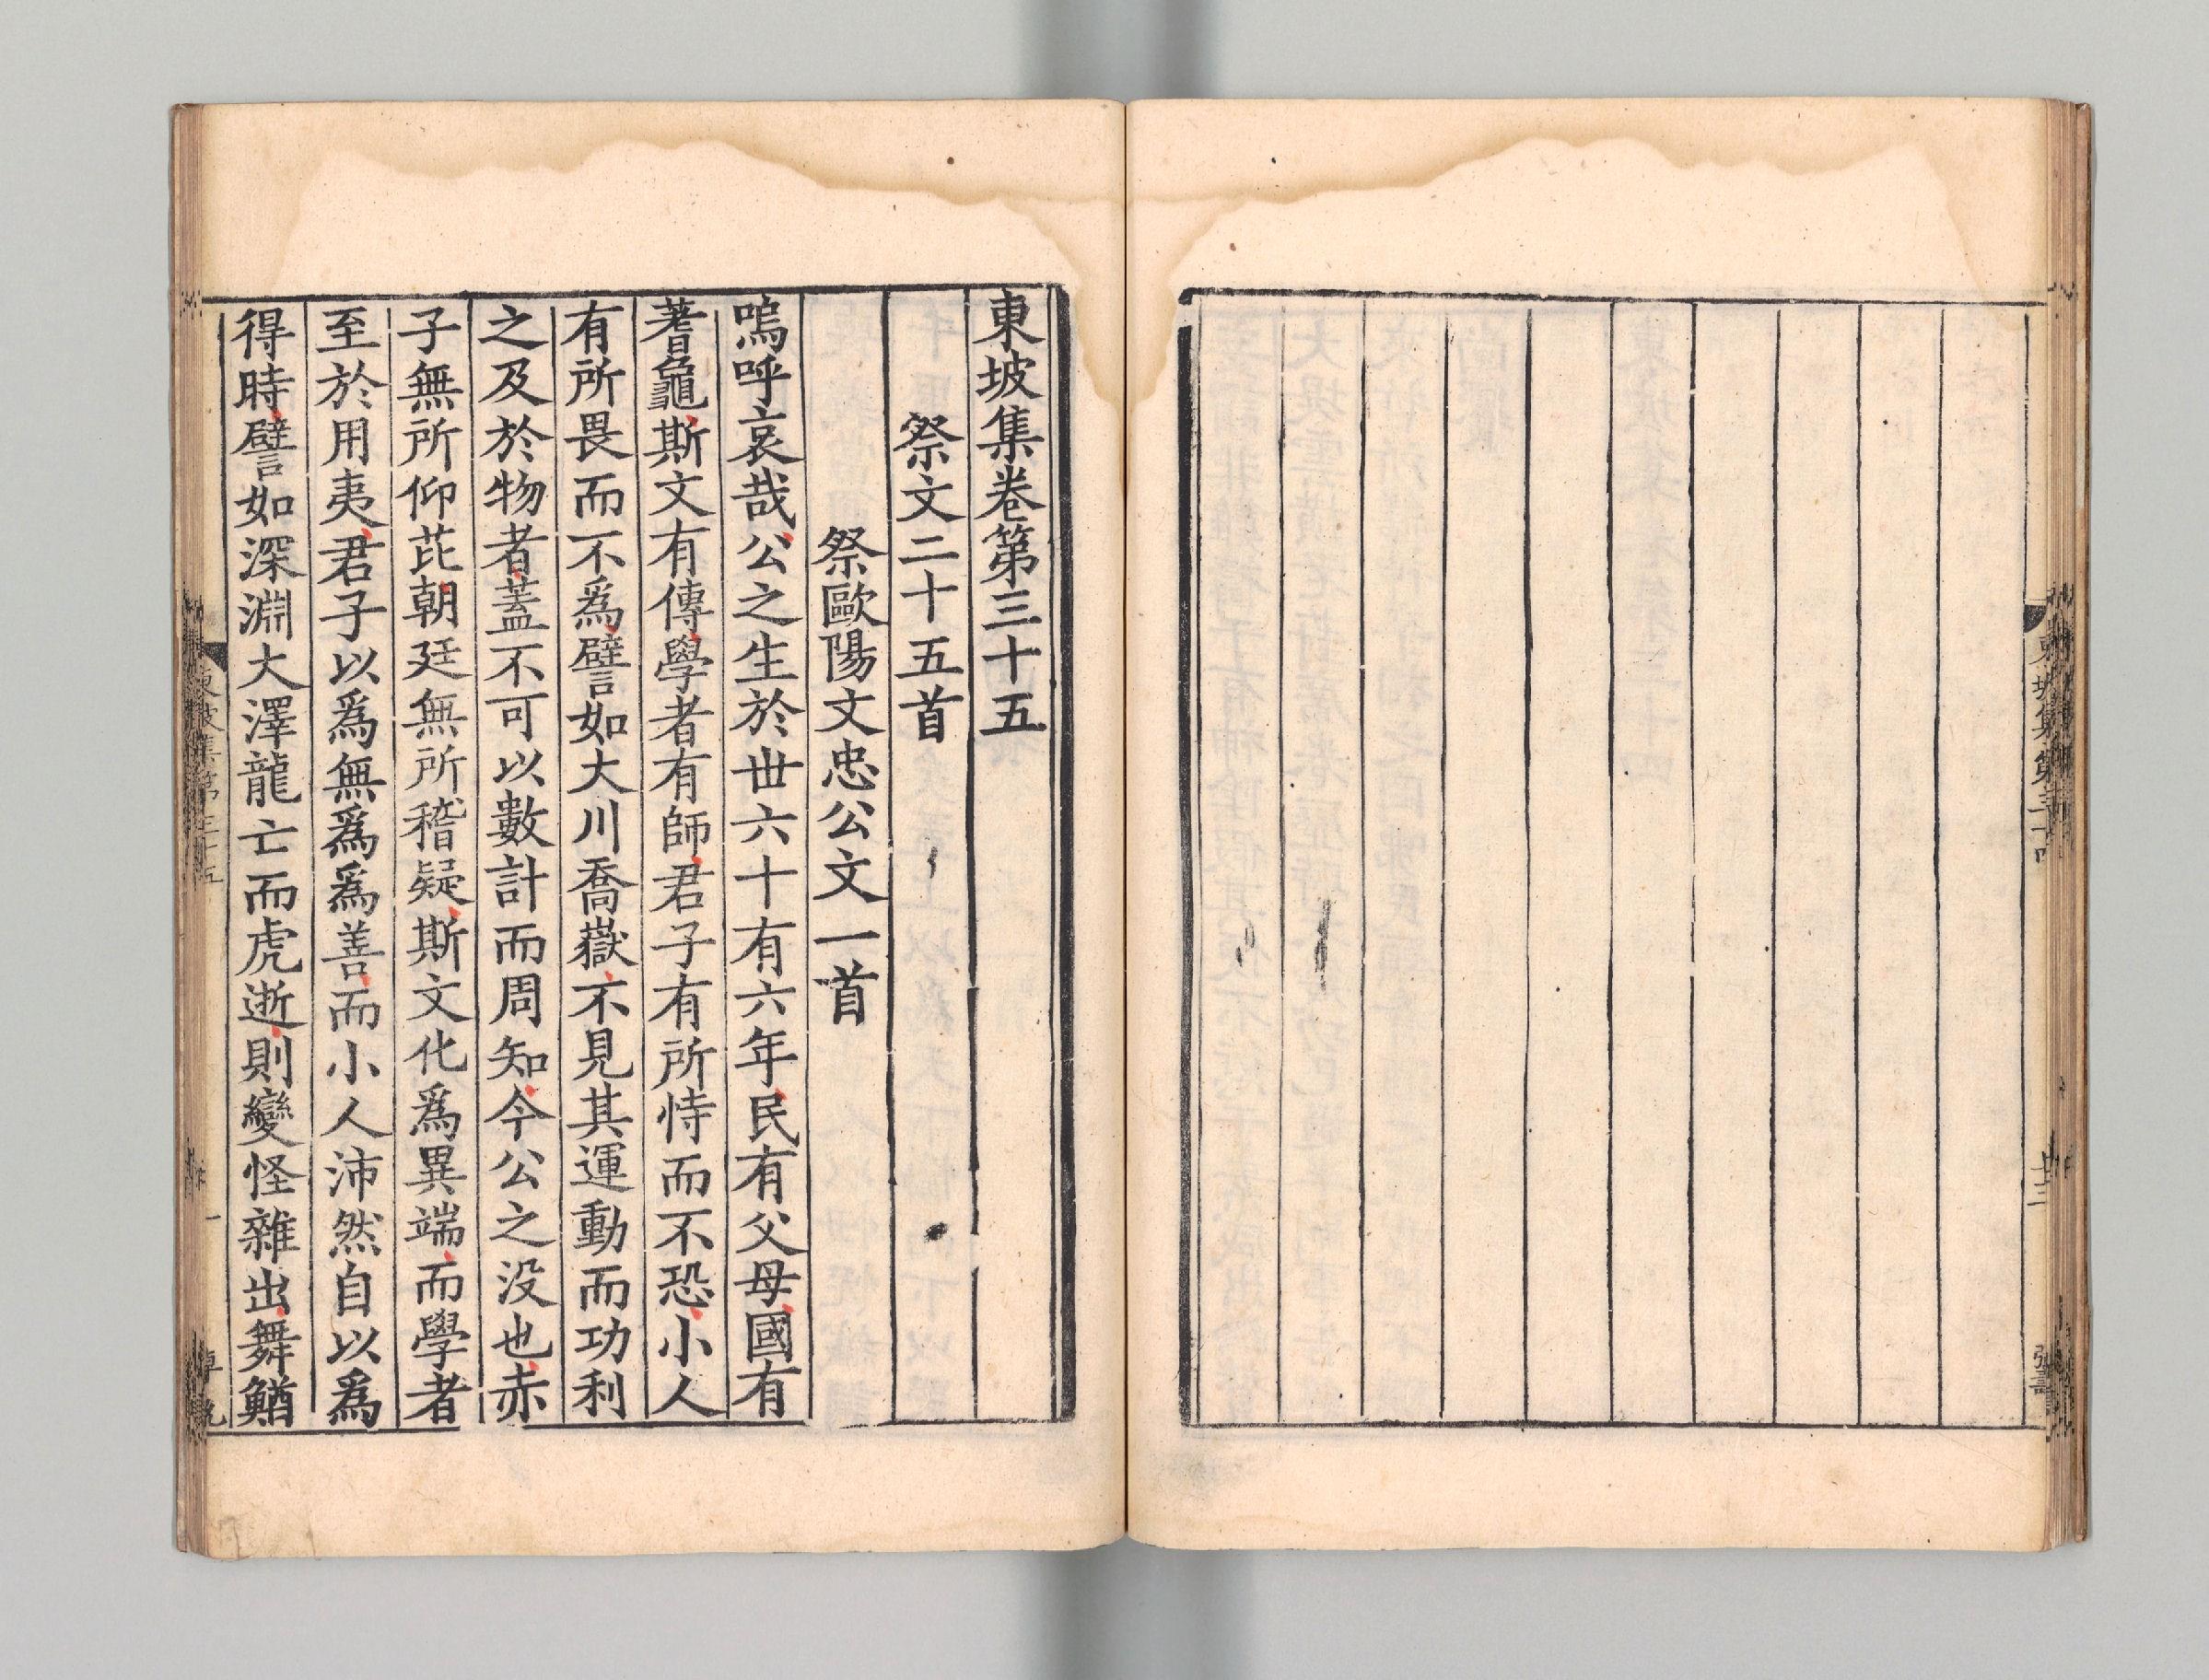 東坡集第三十四
廿三
東坡集卷第三十五
祭文二十五首
祭歐陽文忠公文一首
嗚呼哀哉公之生於世六十有六年民有父母國有
蓍龜斯文有傳學者有師君子有所恃而不恐小人
有所畏而不爲譬如大川喬嶽不見其運動而功利
之及於物者蓋不可以數計而周知今公之没也赤
子無所仰芘朝廷無所稽疑斯文化爲異端而學者
至於用夷君子以爲無爲爲善而小人沛然自以爲
得時譬如深淵大澤龍亡而虎逝則變怪雜出舞鰌
東坡集第三十五
一